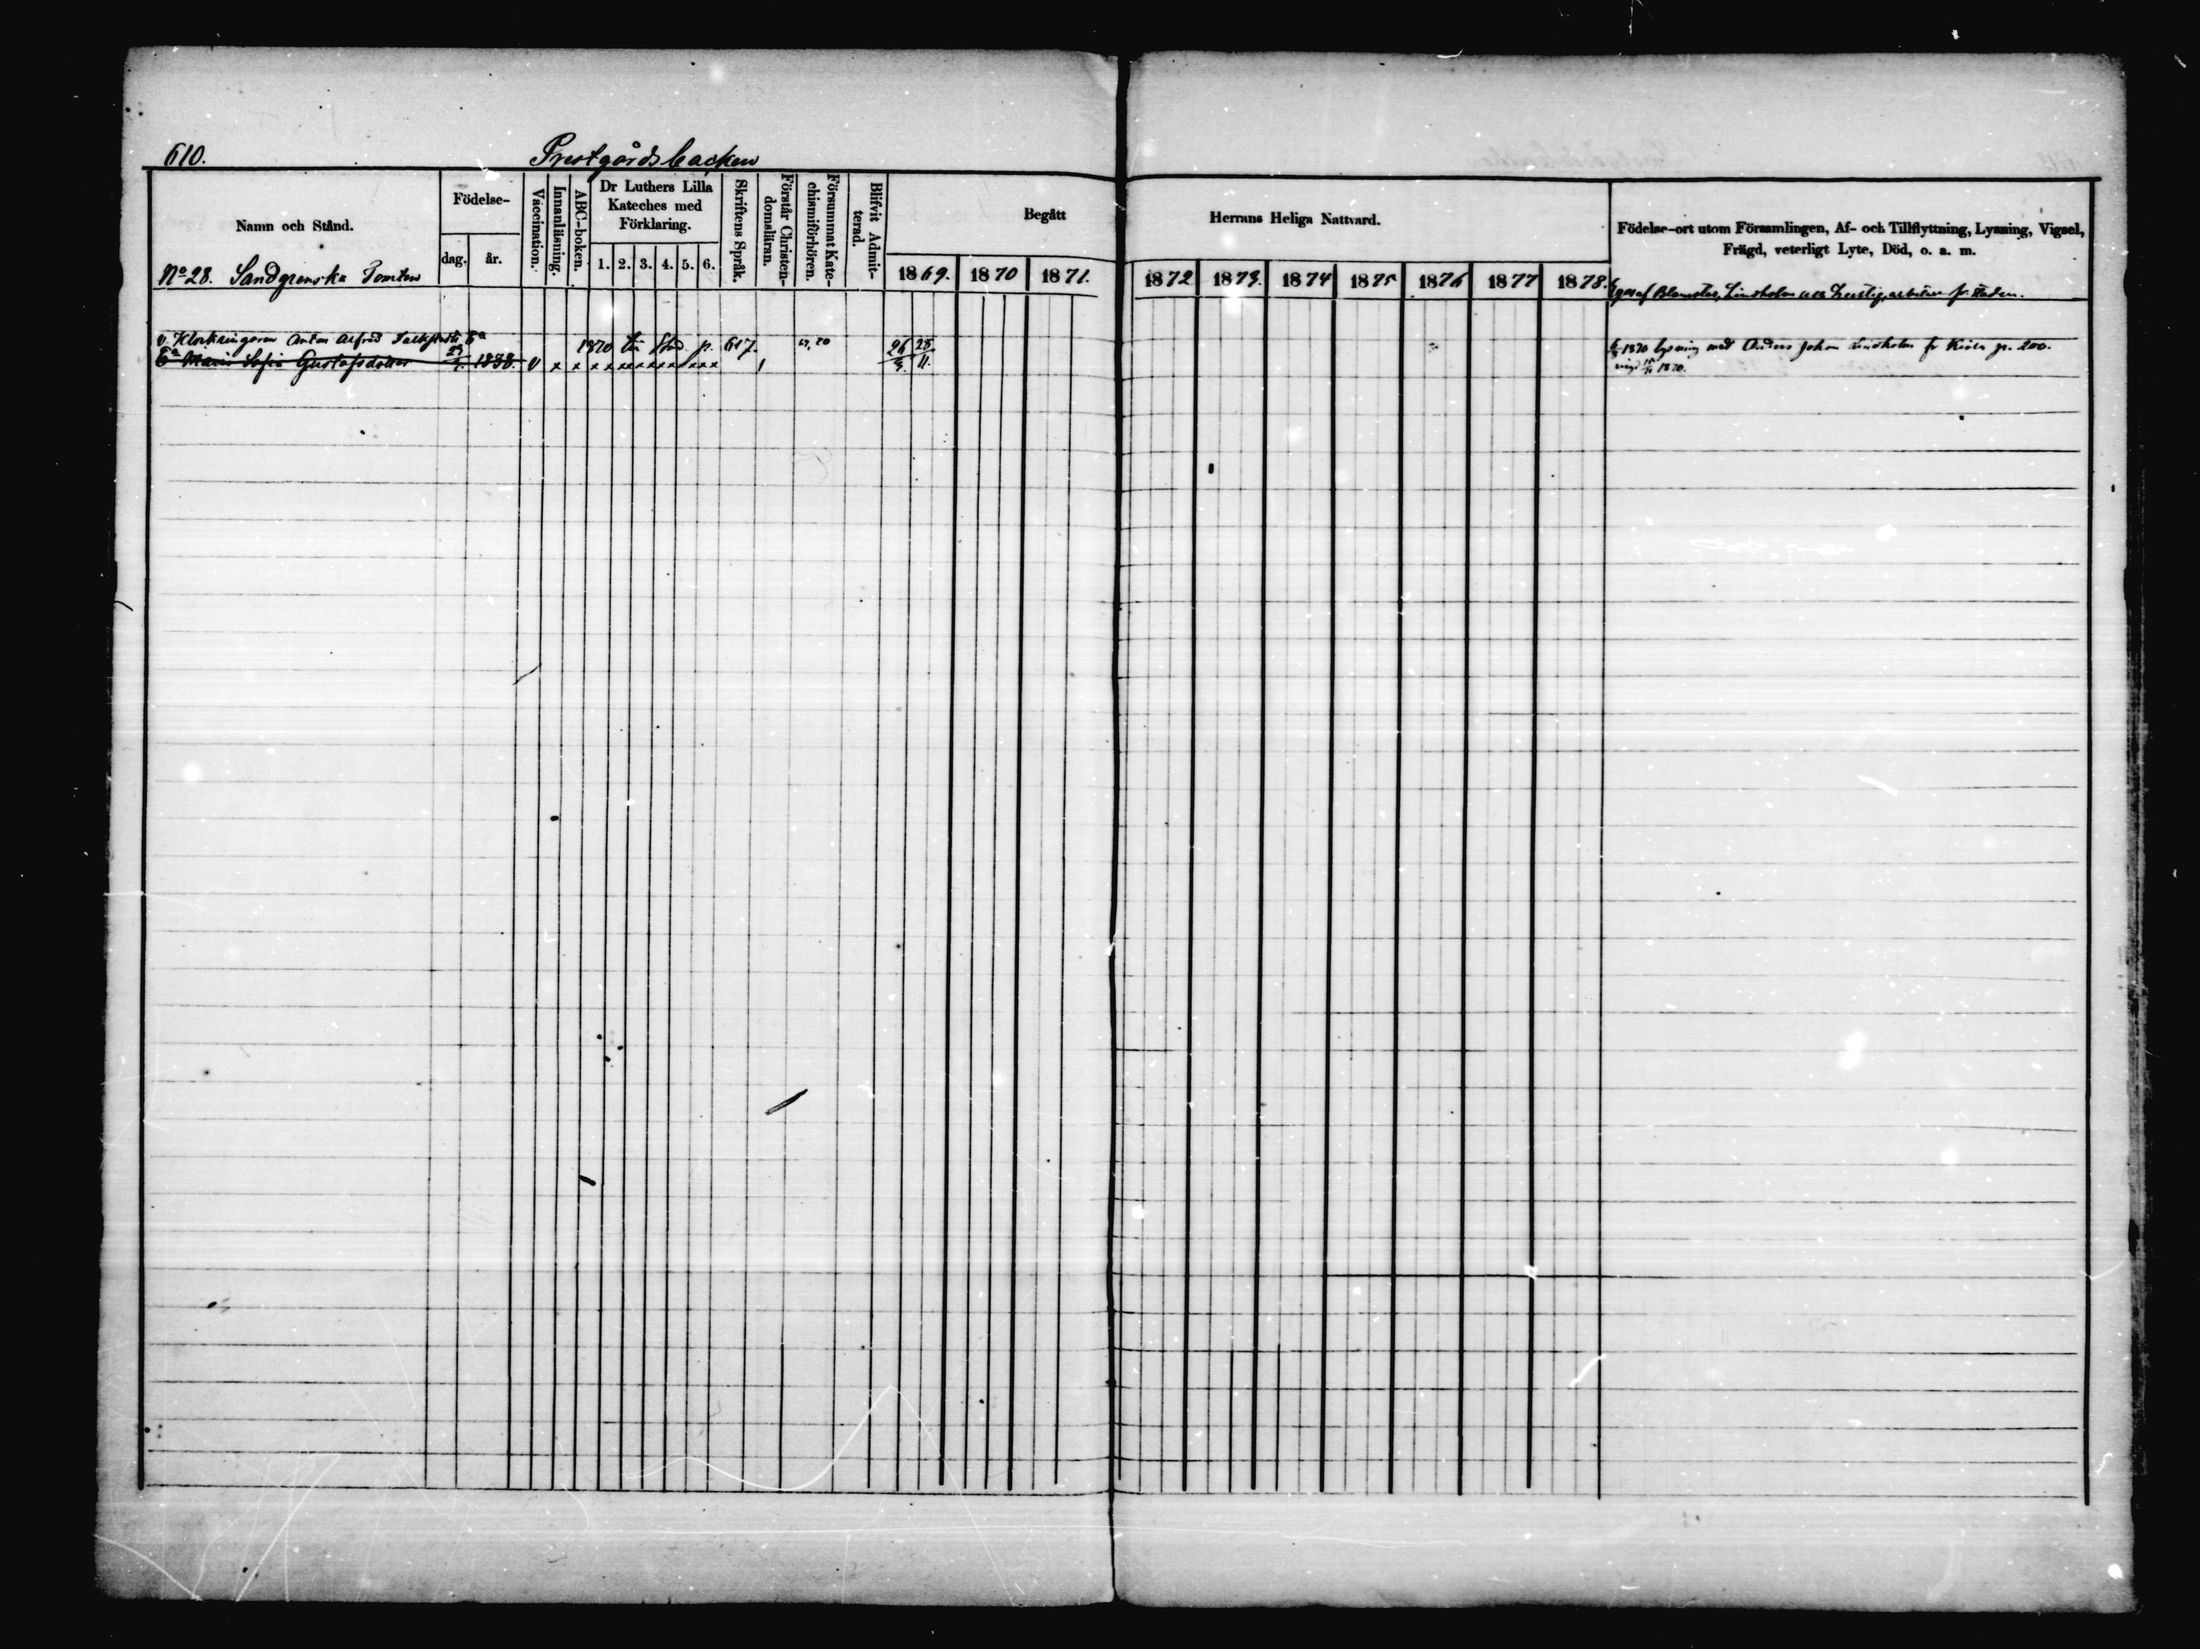 610.
Prestgårdsbacken
Namn och Stånd.
Födelse-
dag.
år.
Vaccination.
Innanläsning.
ABC-boken.
Dr Luthers Lilla
Kateches med
Förklaring.
1. 2. 3. 4. 5. 6.
Skriftens Språk.
Förstår Christen-
domsläran.
Försummat Kate-
chismiförhören.
Blifvit Admit-
terad.
Begått
Herrans Heliga Nattvard.
1869. 1870 1871. 1872 1873. 1874 1875 1876 1877 1878.
Födelse-ort utom Församlingen, Af- och Tillflyttning, Lysning, Vigsel,
Frägd, veterligt Lyte, Död, o. a. m.
No 28. Sandgrenska Tomten
Lindholm och fr. staden.
v. Klockringaren Anton Alfred Ea 1870 p. 617. 26 28
Ea Maria Sofia Gustafsdotter 1838. v x x x x x x x x x x 11.
1870 lysning med Anders Johan Lindholm fr p. 200.
1870.